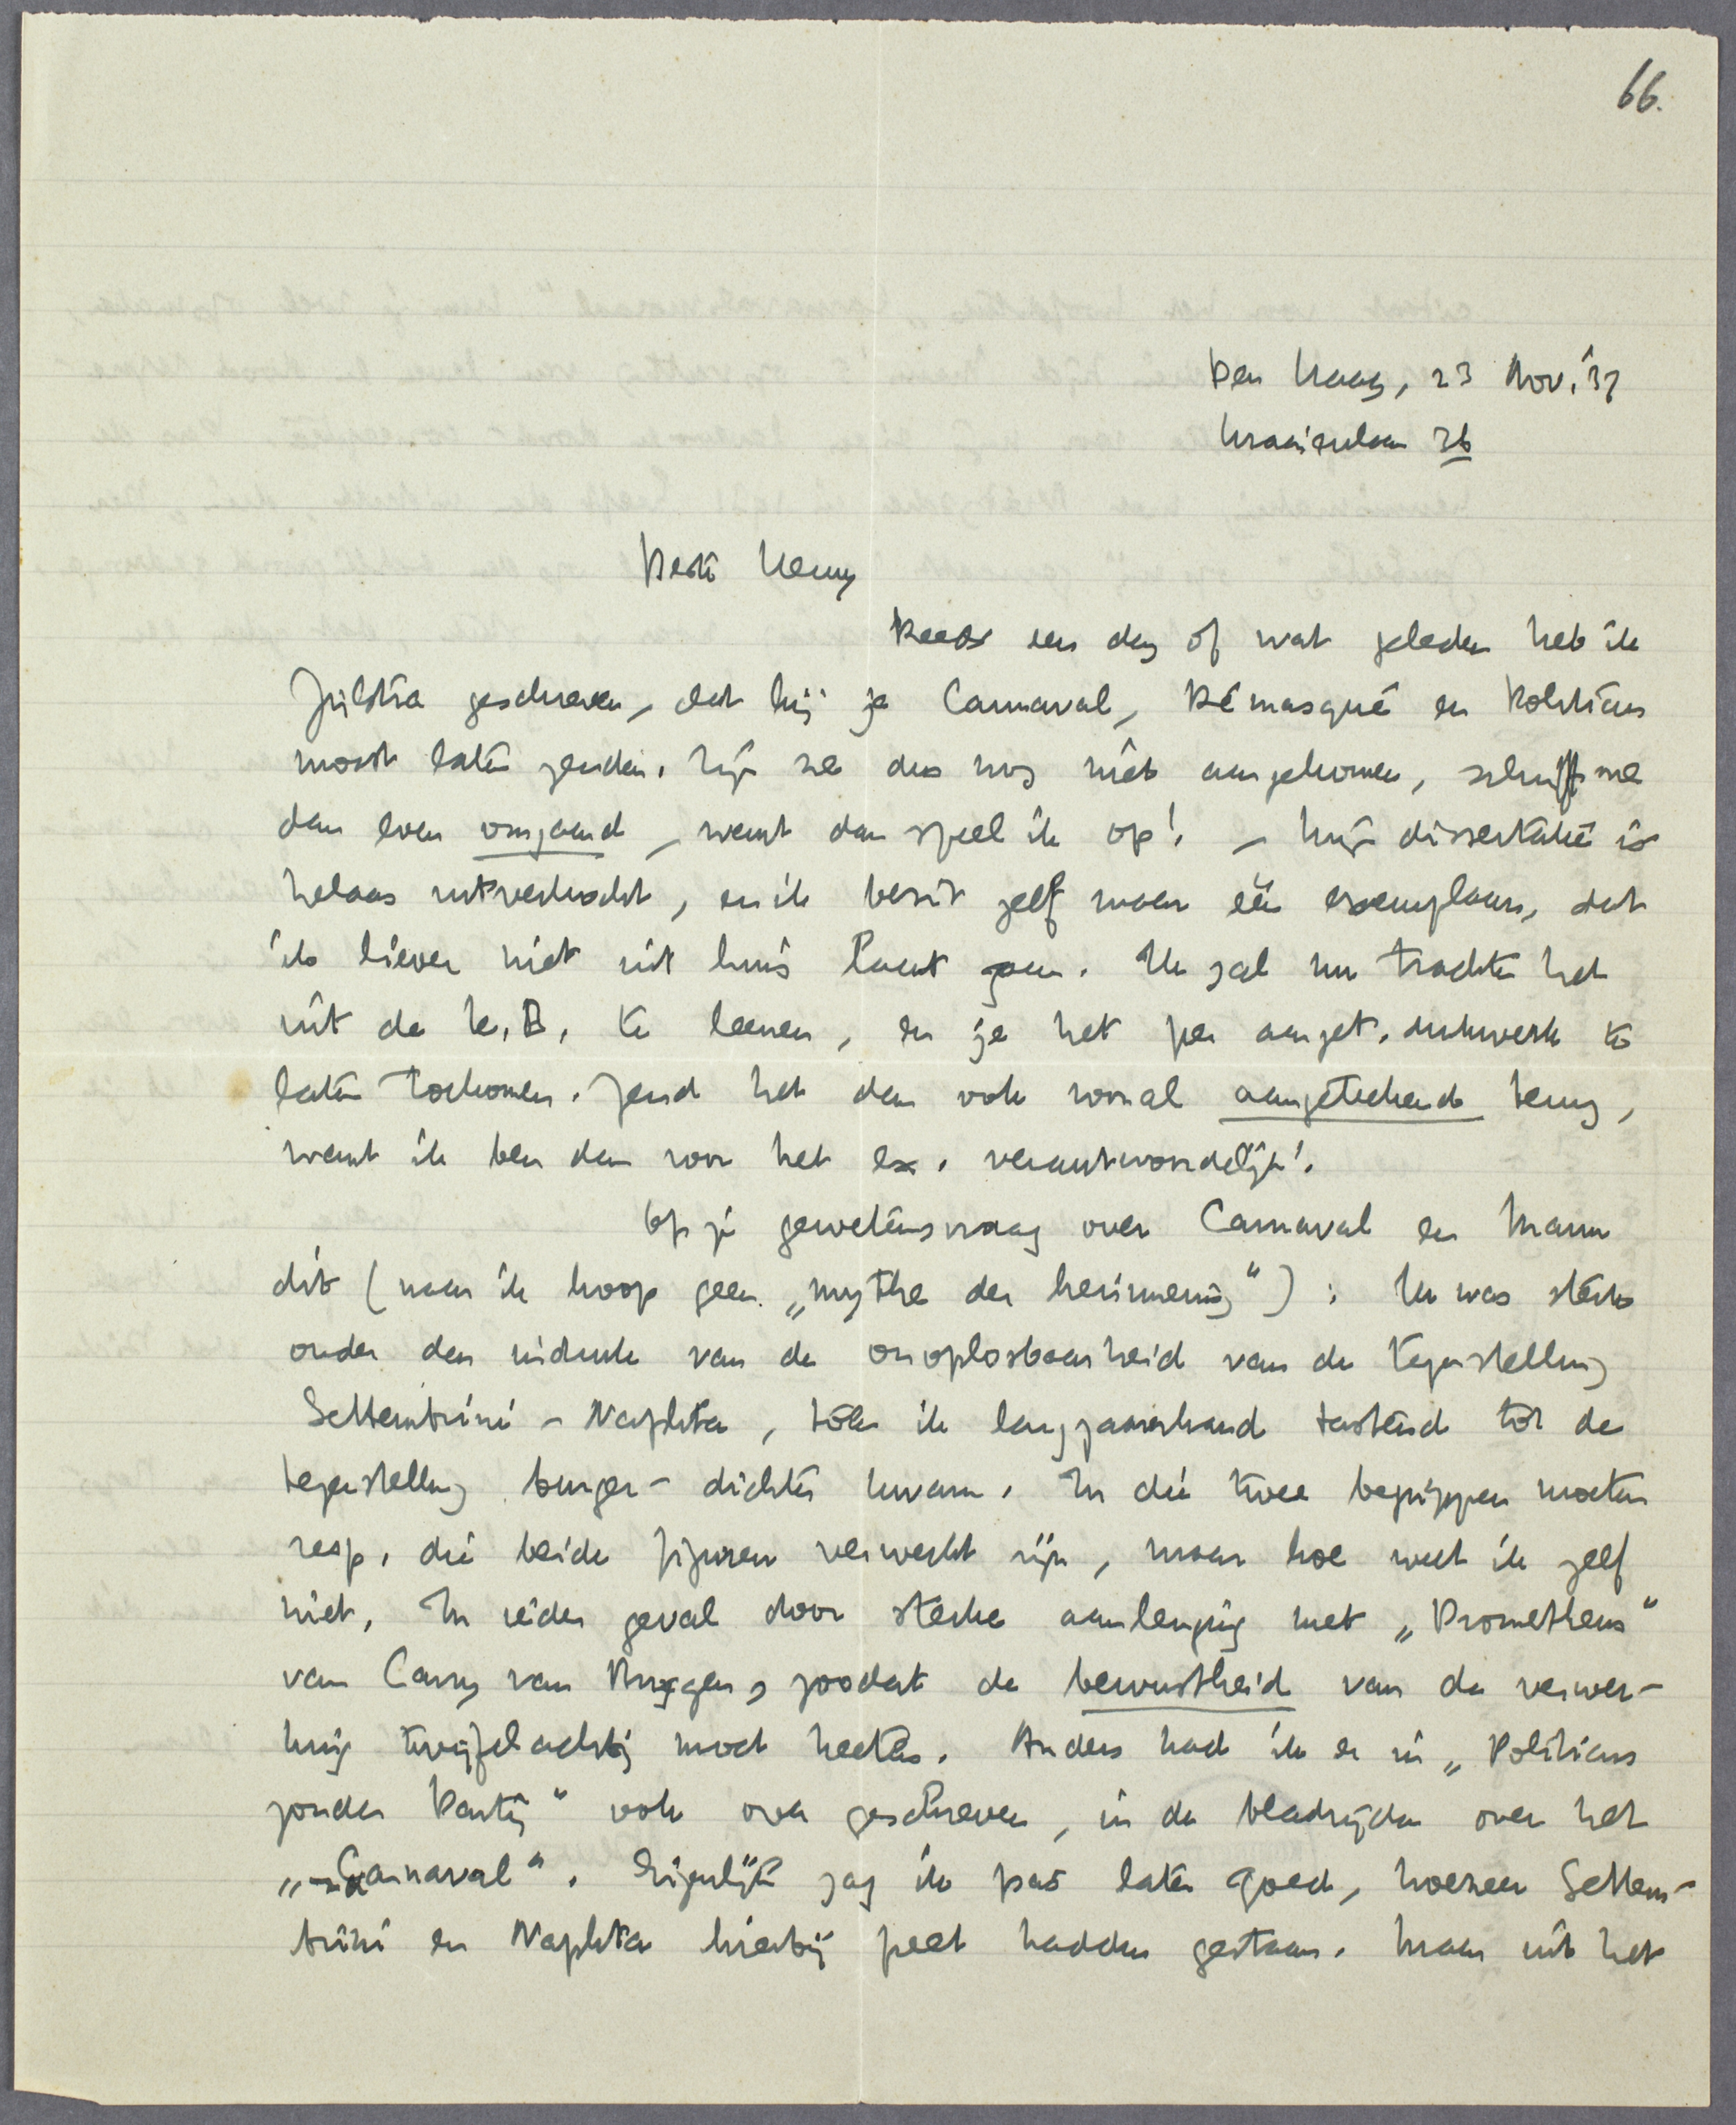 66.
Den Haag, 23 Nov. '37
Kraaienlaan 36
Beste Henny
Reeds een dag of wat geleden heb ik
Zijlstra geschreven, dat hij je Carnaval, Démasqué en Politicus
moest laten zenden. Zijn ze dus nog niet aangekomen, schrijf me
dan even omgaand, want dan speel ik op! – Mijn dissertatie is
helaas uitverkocht, en ik bezit zelf maar één exemplaar, dat
ik liever niet uit huis laat gaan. Ik zal nu trachten het
uit de K.B. te leenen, en je het per aanget. drukwerk te
laten toekomen. Zend het dan ook vooral aangeteekend terug,
want ik ben dan voor het ex. verantwoordelijk!
Op je gewetensvraag over Carnaval en Mann
dit (naar ik hoop geen „mythe der herinnering“): Ik was sterk
onder den indruk van de onoplosbaarheid van de tegenstelling
Settembrini – Naphta, toen ik langzamerhand tastend tot de
tegenstelling burger – dichter kwam. In die twee begrippen moeten
resp. die beide figuren verwerkt zijn, maar hoe weet ik zelf
niet. In ieder geval door sterke aanlenging met „Prometheus“
van Carry van Bruggen, zoodat de bewustheid van de verwer-
king twijfelachtig moet heeten. Anders had ik er in „Politicus
zonder Partij“ ook over geschreven, in de bladzijden over het
„Carnaval“. Eigenlijk zag ik pas later goed, hoezeer Settem-
brini en Naphta hierbij peet hadden gestaan. Maar uit het